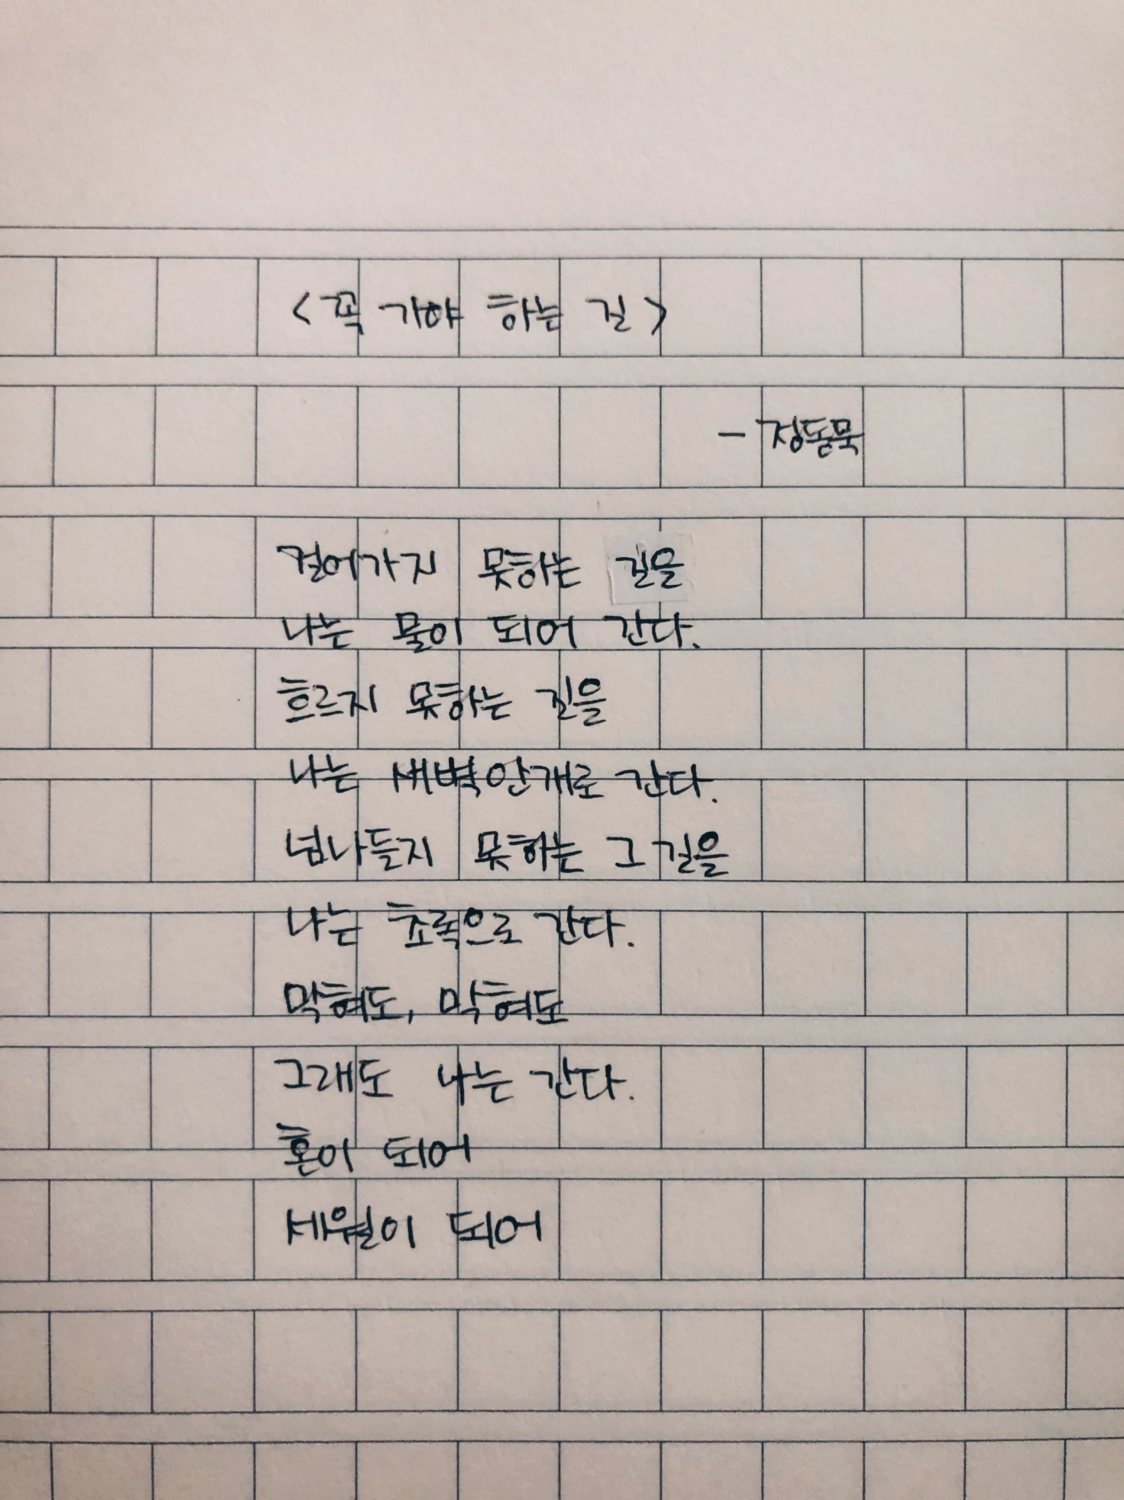 <꼭 가야 하는 길>
- 정동묵
걸어가지 못하는 길을
나는 물이 되어 간다.
흐르지 못하는 길을
나는 새벽안개로 간다.
넘나들지 못하는 그 길을
나는 초록으로 간다.
막혀도, 막혀도
그래도 나는 간다.
혼이 되어
세월이 되어